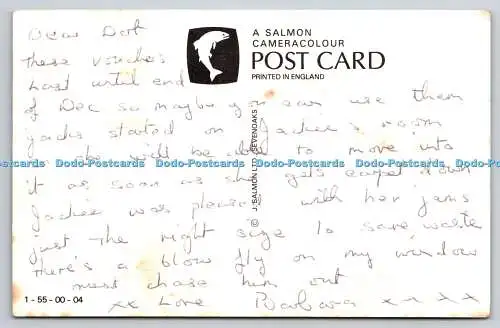 A SALMON
CAMERACOLOUR
POST CARD
PRINTED IN ENGLAND
© J. SALMON LTD., SEVENOAKS
Dear Dot
these vouchers
last until end
of Dec so maybe you can use them
Jacks started on Jackie's room
so she will be able to move into
it as soon as she gets carpet down
Jackie was pleased with her jams
just the right size to save waste
there's a blow fly on my window
must chase him out
xx Love Barbara xx xx
1-55-00-04
Dodo-Postcards Dodo-Postcards Dodo-Postcards Dodo-Postcards Dodo-Postcards